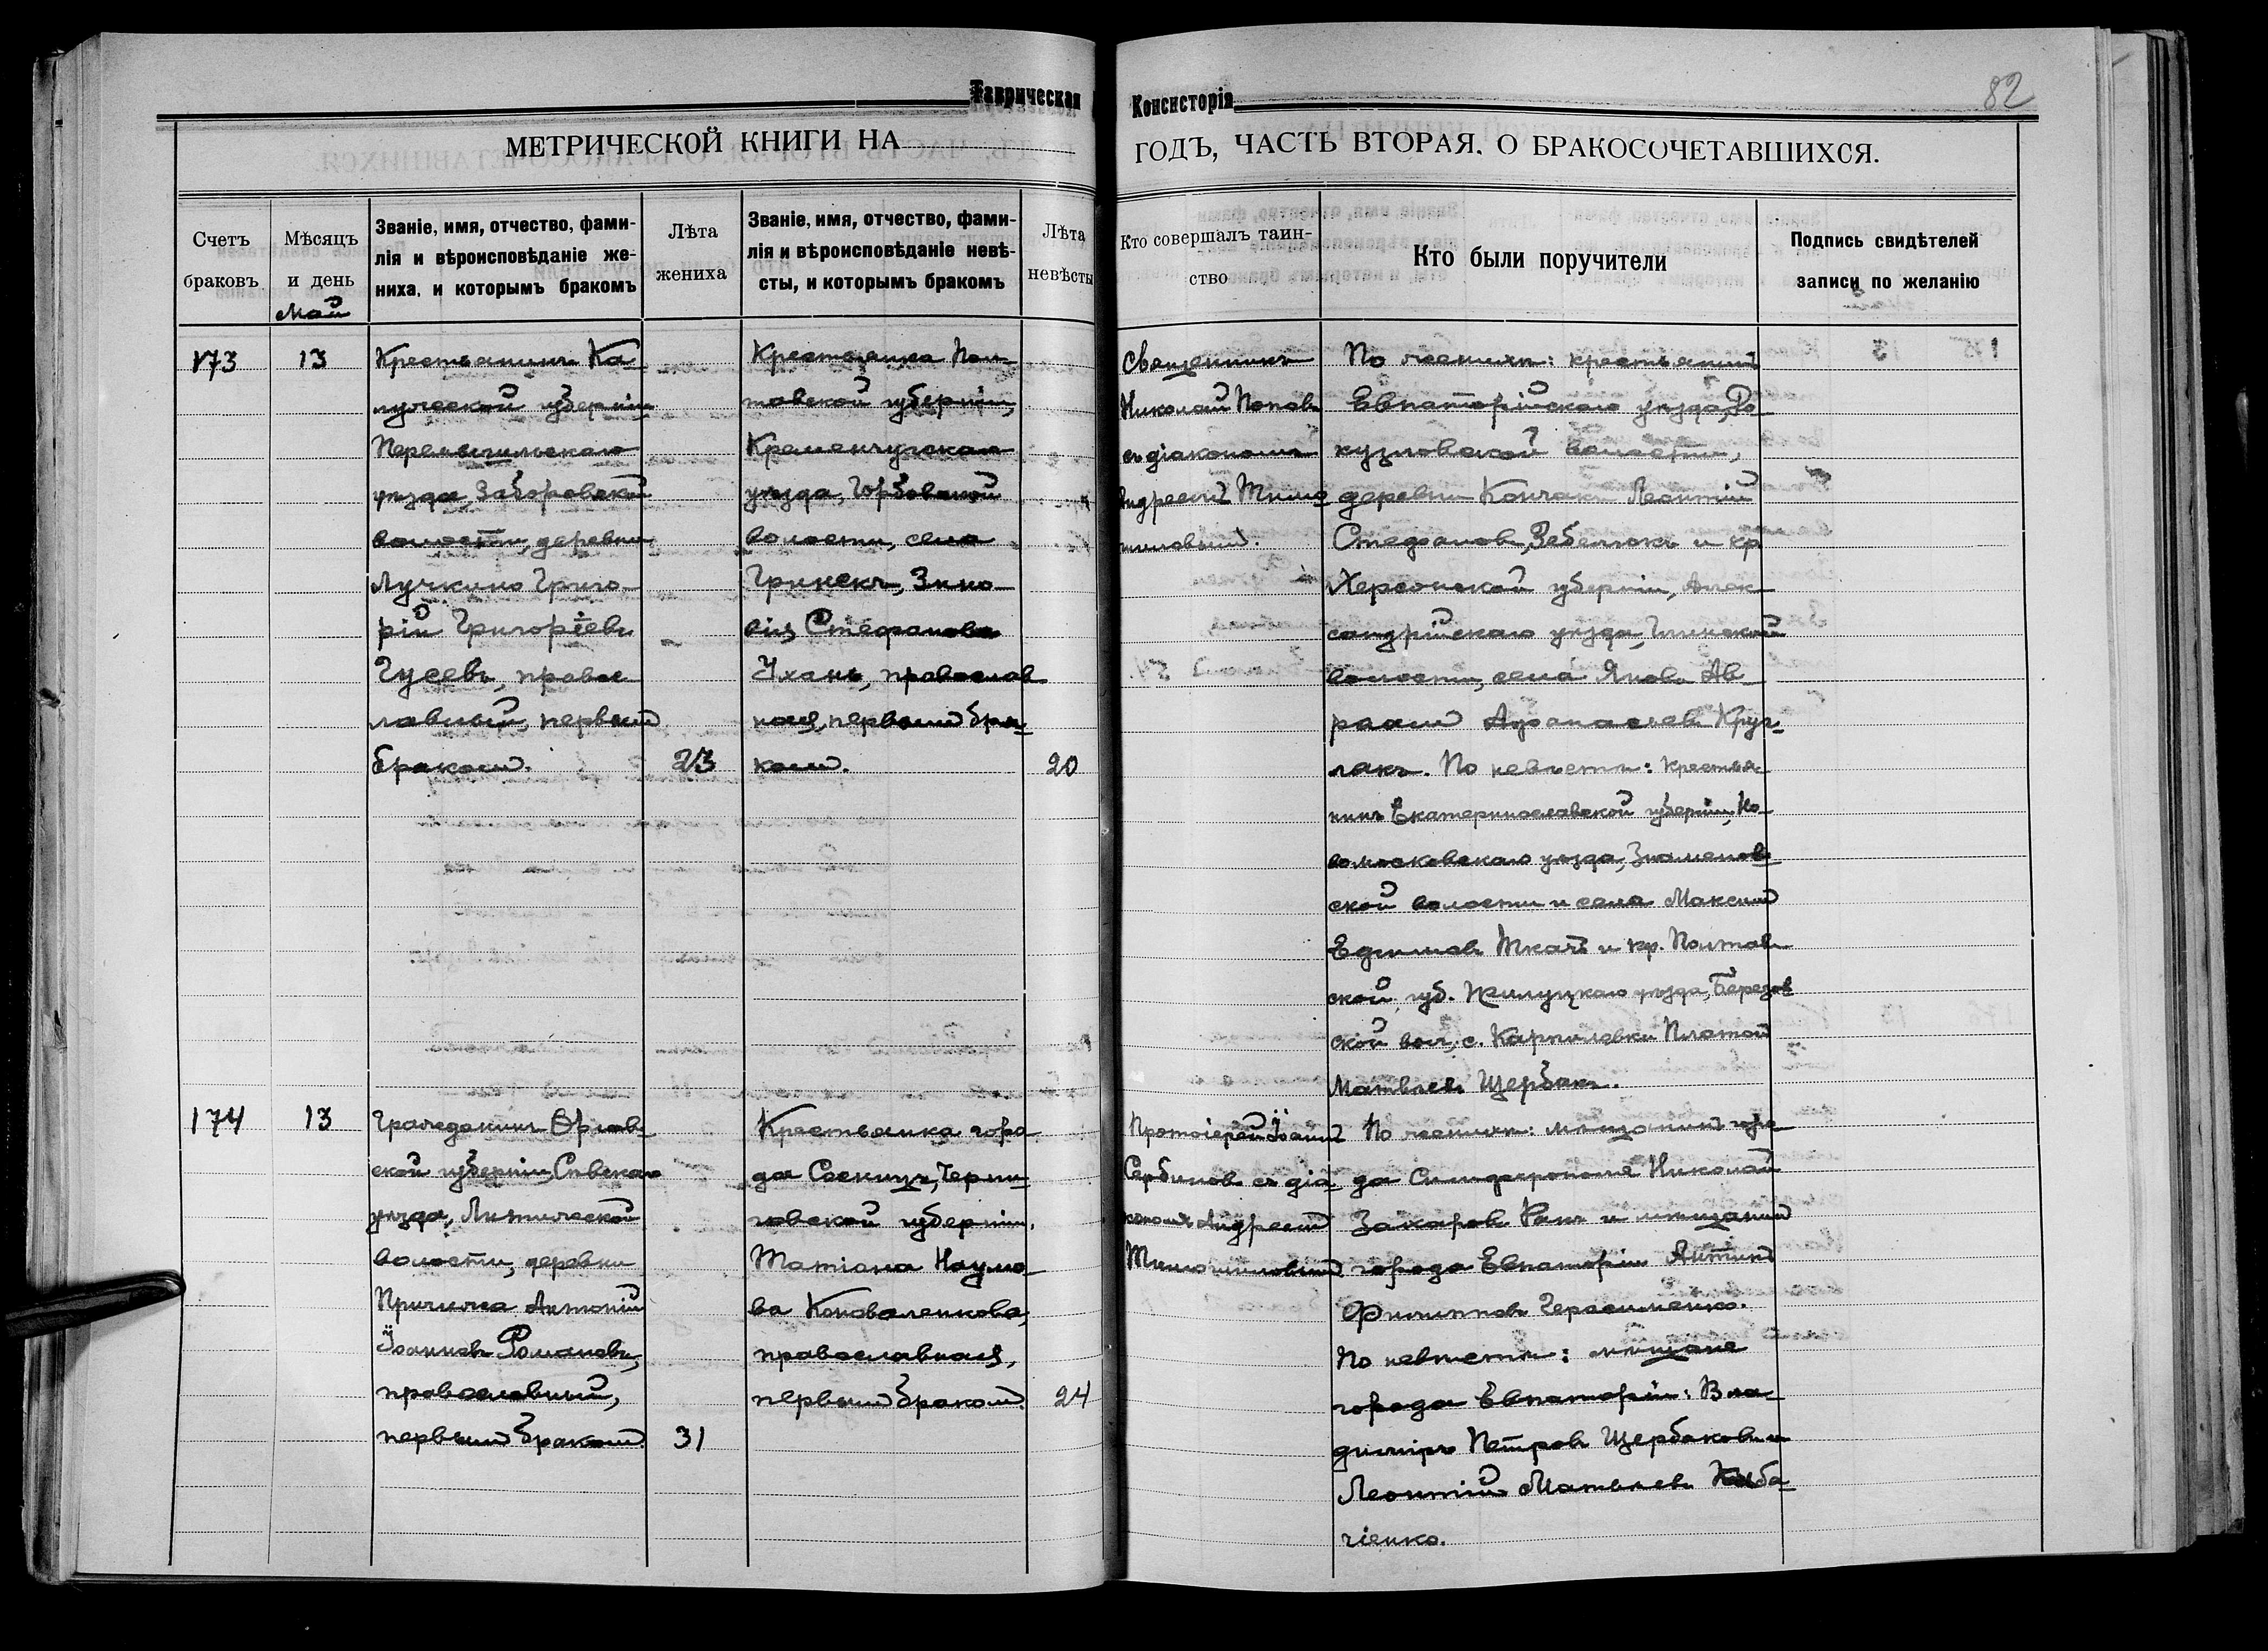 Таврическая Консисторія
82
МЕТРИЧЕСКОЙ КНИГИ НА
ГОДЪ, ЧАСТЬ ВТОРАЯ. О БРАКОСОЧЕТАВШИХСЯ.
Счетъ
браковъ
Мѣсяцъ
и день
Май
Званіе, имя, отчество, фами-
лія и вѣроисповѣданіе же-
ниха, и которымъ бракомъ
Лѣта
жениха
Званіе, имя, отчество, фами-
лія и вѣроисповѣданіе невѣ-
сты, и которымъ бракомъ
Лѣта
невѣсты
Кто совершалъ таин-
ство
Кто были поручители
Подпись свидѣтелей
записи по желанію
173
13
Крестьянинъ Ка-
лужской губерніи
Перемышльскаго
уѣзда, Заборовской
волости, деревни
Лучкино Григо-
рій Григоріевъ
Гусевъ, правос
лавный, первымъ
бракомъ.
23
Крестьянка Пол-
тавской губерніи,
Кременчугскаго
уѣзда, Горбовской
волости, села
Гринекъ, Зино-
вія Стефанова
Ухань, православ
ная, первымъ бра-
комъ.
20
Священникъ
Николай Поповъ
съ діакономъ
Андреемъ Тимо
шиловымъ.
По женихѣ: крестьянинъ
Евпаторійскаго уѣзда,
кузловской волости,
деревни Кончакъ Леонтій
Стефановъ Зебелюкъ и кр
Херсонской губерніи, Алек-
сандрійскаго уѣзда, Глинской
волости, села Янова Ав-
раамъ Афанасьевъ Круг-
лакъ. По невѣстѣ: крестья-
нинъ Екатеринославской губерніи, Но-
вомосковскаго уѣзда, Знаменов-
ской волости и села Максимъ
Едимовъ Ткачъ и кр. Полтав-
ской губ. уѣзда, Березов-
ской вол., с. Карпиловки Платонъ
Матвѣевъ Щербакъ.
174
13
Гражданинъ Орлов-
ской губерніи, Сѣвскаго
уѣзда,
волости, деревни
Причижа Антоній
Іоанновъ Романовъ,
православный,
первымъ бракомъ.
31
Крестьянка горо-
да Сосницъ, Черни-
говской губерніи,
Татіана Наумо-
ва Коноваленкова,
православная,
первымъ бракомъ.
24
Протоіерей Іоаннъ
Сербиновъ съ діа-
кономъ Андреемъ
Тимошиловымъ
По женихѣ: мѣщанинъ горо-
да Симферополя Николай
Захаровъ Ракъ и мѣщанинъ
города Евпаторіи Антинъ
Филипповъ Герасименко.
По невѣстѣ: мѣщане
города Евпаторіи: Вла-
диміръ Петровъ Щербаковъ и
Леонтій Матвѣевъ
ченко.